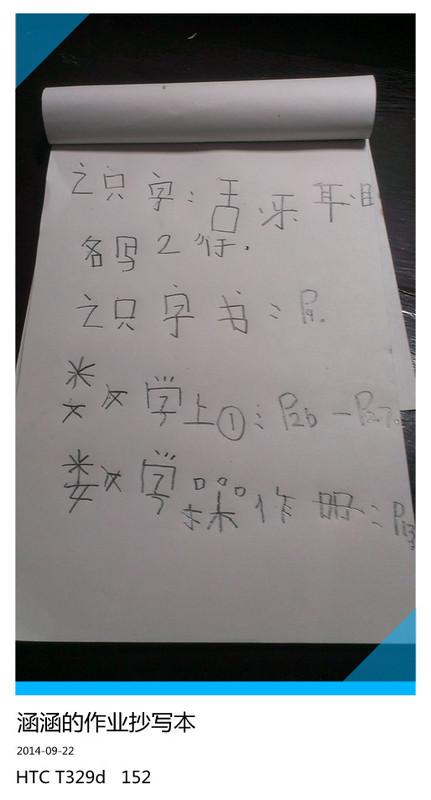 识字：舌 牙 耳 目
各写2行.
识字书：P9.
数学上①：P26-P27.
数学操作册：P13
涵涵的作业抄写本
2014-09-22
HTC T329d 152